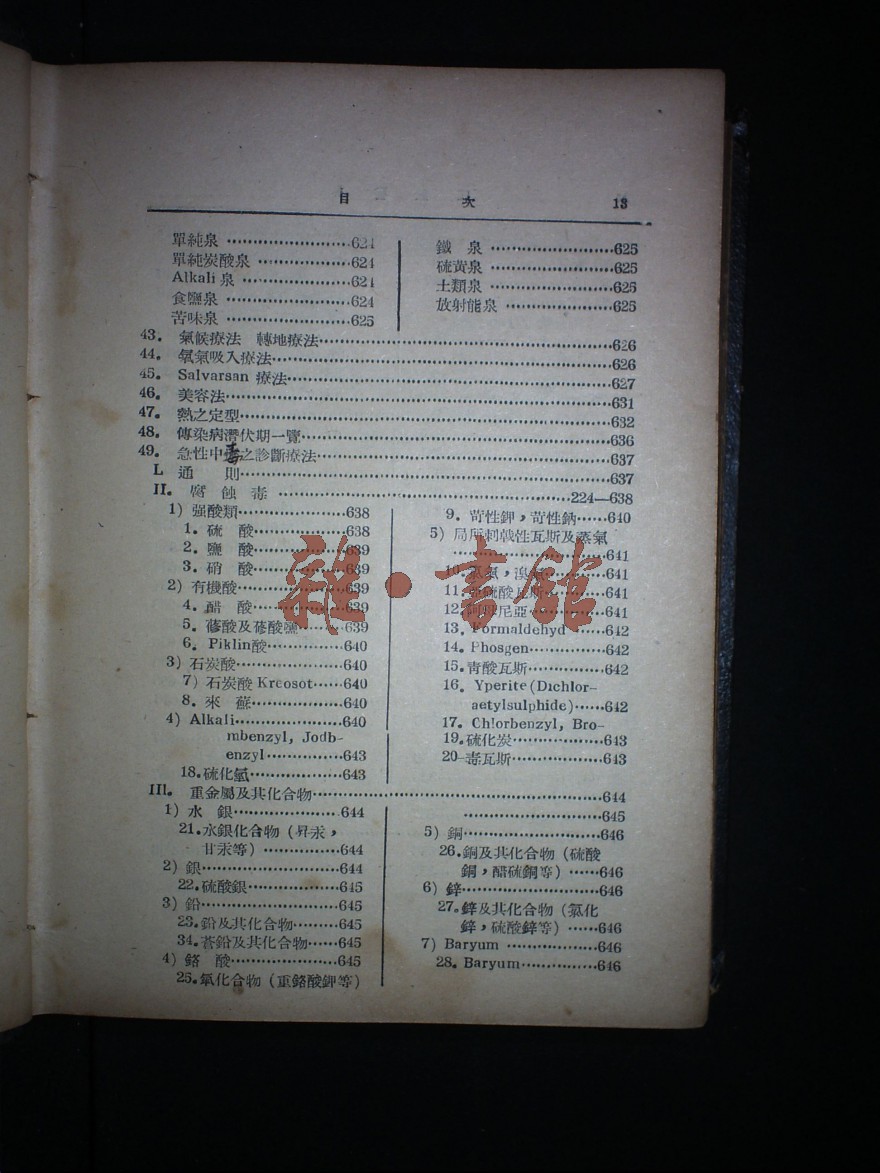 目 次 13
單純泉 624
單純炭酸泉 624
Alkali 泉 624
食鹽泉 624
苦味泉 625
鐵 泉 625
硫黃泉 625
土類泉 625
放射能泉 625
43. 氣候療法 轉地療法 626
44. 氧氣吸入療法 626
45. Salvarsan 療法 627
46. 美容法 631
47. 熱之定型 632
48. 傳染病潛伏期一覽 636
49. 急性中毒之診斷療法 637
I. 通 則 637
II. 腐蝕毒 224—638
1) 强酸類 638
1. 硫 酸 638
2. 鹽 酸 639
3. 硝 酸 639
2) 有機酸 639
4. 醋 酸 639
5. 蓚酸及蓚酸鹽 639
6. Piklin酸 640
3) 石炭酸 640
7) 石炭酸 Kreosot 640
8. 來 蘇 640
4) Alkali 640
mbenzyl, Jodb-
enzyl 643
18.硫化氫 643
9. 苛性鉀，苛性鈉 640
5) 局所刺戟性瓦斯及蒸氣
641
10. 氯氣，溴氣 641
11.亞硫酸瓦斯 641
12.阿摩尼亞 641
13. Formaldehyd 642
14. Phosgen 642
15.靑酸瓦斯 642
16. Yperite (Dichlor-
aetylsulphide) 642
17. Chlorbenzyl, Bro-
19.硫化炭 643
20-毒瓦斯 643
III. 重金屬及其化合物 644
1) 水 銀 644
21.水銀化合物 (昇汞，
甘汞等) 644
2) 銀 644
22.硫酸銀 645
3) 鉛 645
23.鉛及其化合物 645
34.蒼鉛及其化合物 645
4) 鉻 酸 645
25.氧化合物 (重鉻酸鉀等)
645
5) 銅 646
26.銅及其化合物 (硫酸
銅，醋硫銅等) 646
6) 鋅 646
27.鋅及其化合物 (氯化
鋅，硫酸鋅等) 646
7) Baryum 646
28. Baryum 646
雜·書館